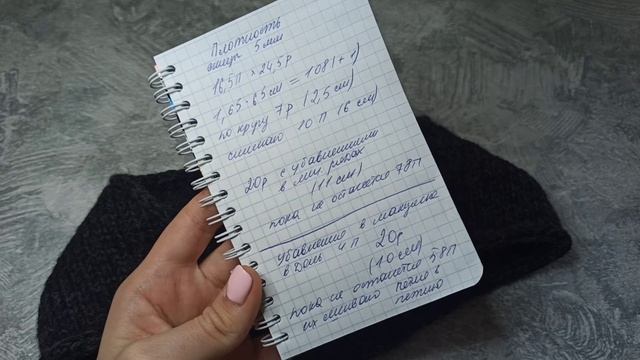 Плотность
спицы 5 мм
16,5п × 24,5р
1,65 · 65см = 108(+1)
по кругу 7р (2,5 см)
снимаю 10 п (6 см)
20р с убавлениями
в мин рядах
(11 см)
пока не останется 78п
убавление в макушке
в доль 4 п 20р
(10 см)
пока не останется 58п
их сшиваю петля в
петлю